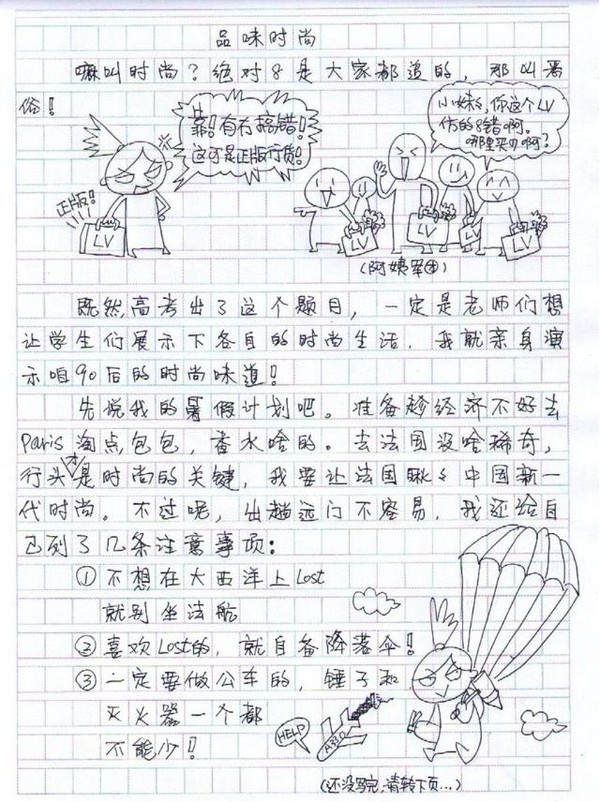 品味时尚
嘛叫时尚?绝对8是大家都追的,那叫恶
俗!
靠!有冇搞错!
这可是正版行货!
小妹々,你这个LV
仿的8错啊。
哪里买的啊?
正版!
LV
LV
LV
LV
LV
(阿姨军团)
既然高考出了这个题目,一定是老师们想
让学生们展示下各自的时尚生活,我就亲身演
示咱90后的时尚味道!
先说我的暑假计划吧。准备趁经济不好去
Paris淘点包包,香水啥的。去法国没啥稀奇,
行头才是时尚的关键,我要让法国瞅々中国新一
代时尚。不过呢,出趟远门不容易,我还给自
己列了几条注意事项:
①不想在大西洋上Lost
就别坐法航
②喜欢Lost的,就自备降落伞!
③一定要做公车的,锤子和
灭火器一个都
不能少!
HELP
A330
(还没写完,请转下页...)